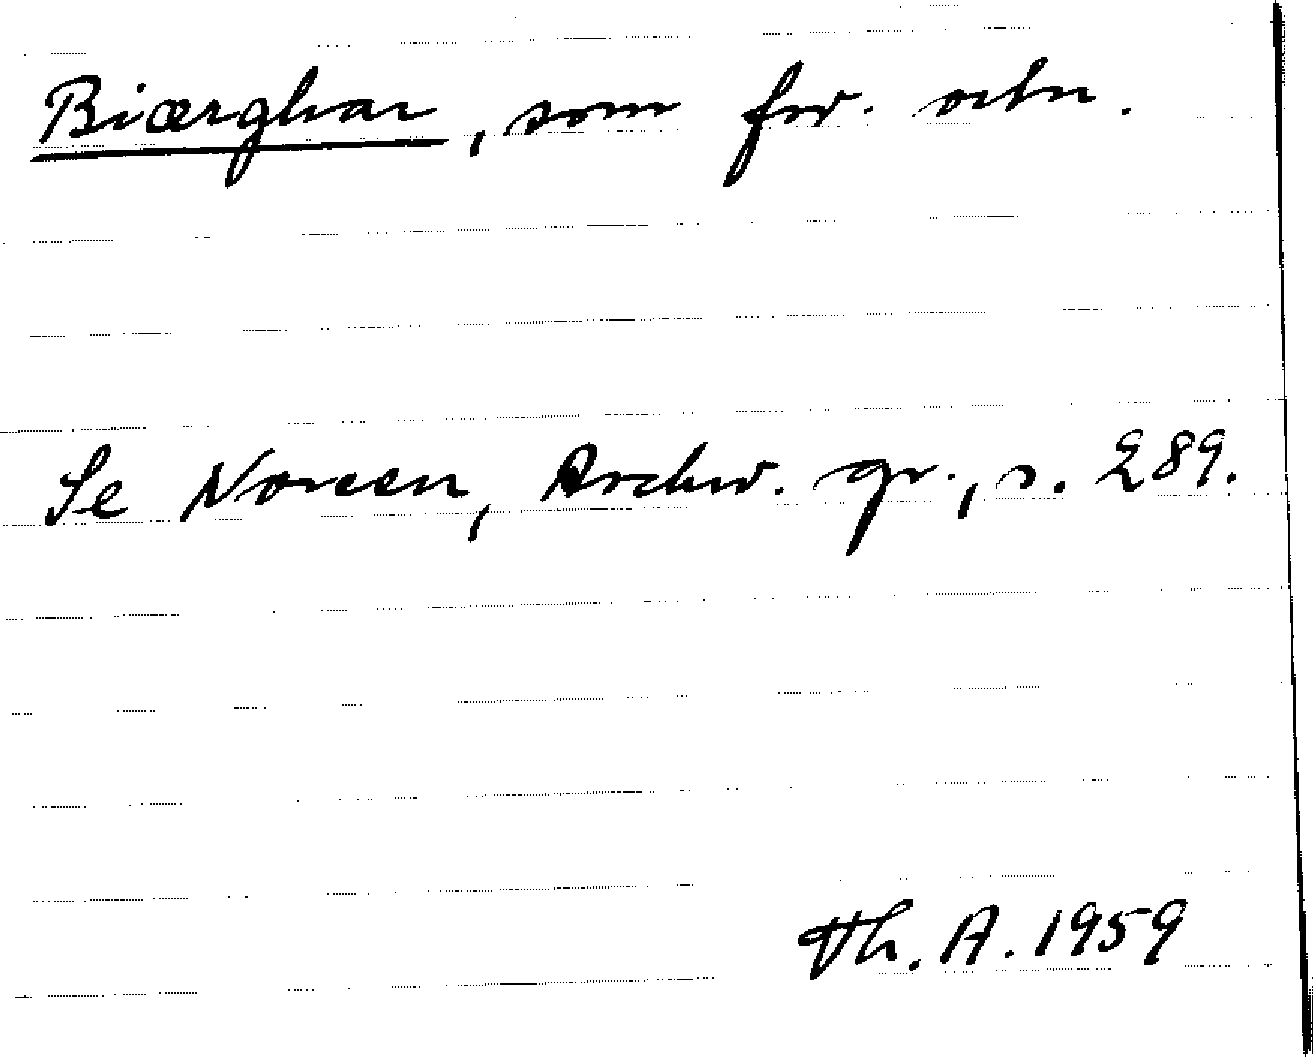 Biærghar, som fsv. ortn.
Se Noreen, Aschw. gr., s. 289.
Th. A. 1959